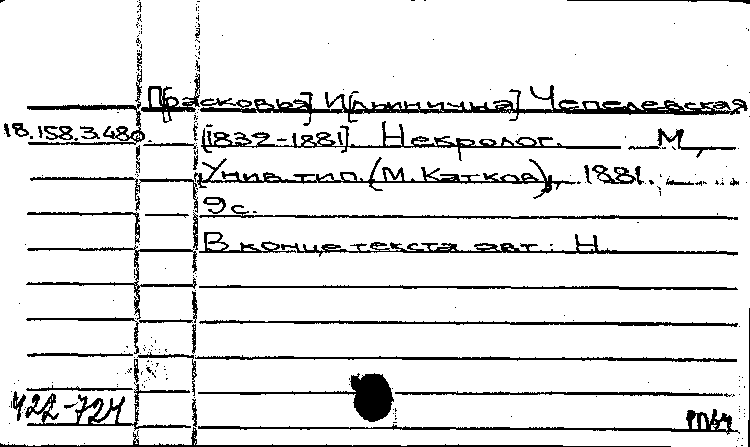 П[расковья] И[льинична] Чепелевская
18.158.3.480.
[1832-1881]. Некролог. М.,
Унив. тип. (М. Катков), 1881.
9 с.
В конце текста авт.: Н.
422-724